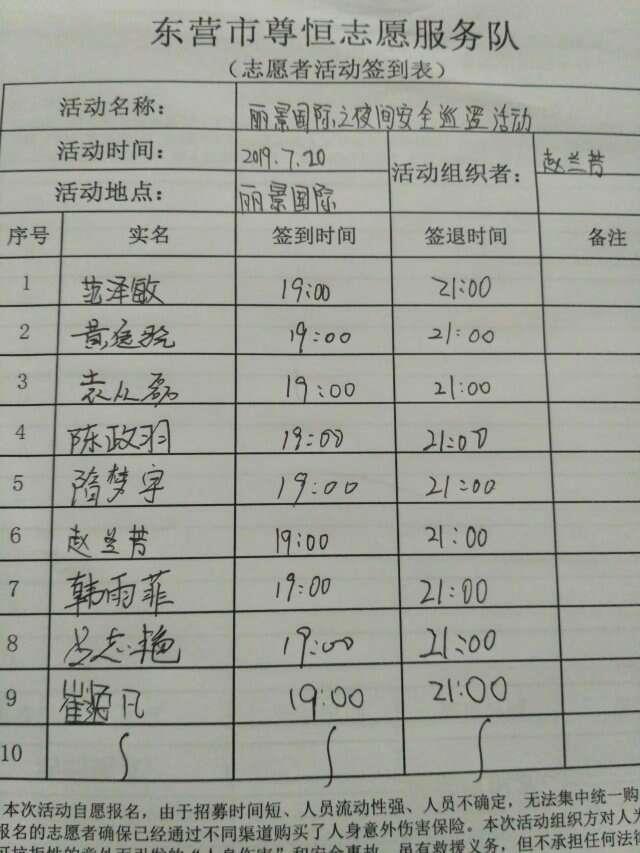 东营市尊恒志愿服务队
（志愿者活动签到表）
活动名称： 丽景国际之夜间安全巡逻活动
活动时间： 2019.7.20 活动组织者： 赵兰芬
活动地点： 丽景国际
序号 实名 签到时间 签退时间 备注
1 范泽敏 19:00 21:00
2 黄 19:00 21:00
3 袁从磊 19:00 21:00
4 陈政羽 19:00 21:00
5 隋梦宇 19:00 21:00
6 赵兰芬 19:00 21:00
7 韩雨菲 19:00 21:00
8 志艳 19:00 21:00
9 崔凡 19:00 21:00
10
本次活动自愿报名，由于招募时间短、人员流动性强、人员不确定，无法集中统一购
报名的志愿者确保已经通过不同渠道购买了人身意外伤害保险。本次活动组织方对人为
可抗拒性的意外而引发的“人身伤害”和安全事故，虽有救援义务，但不承担任何法律